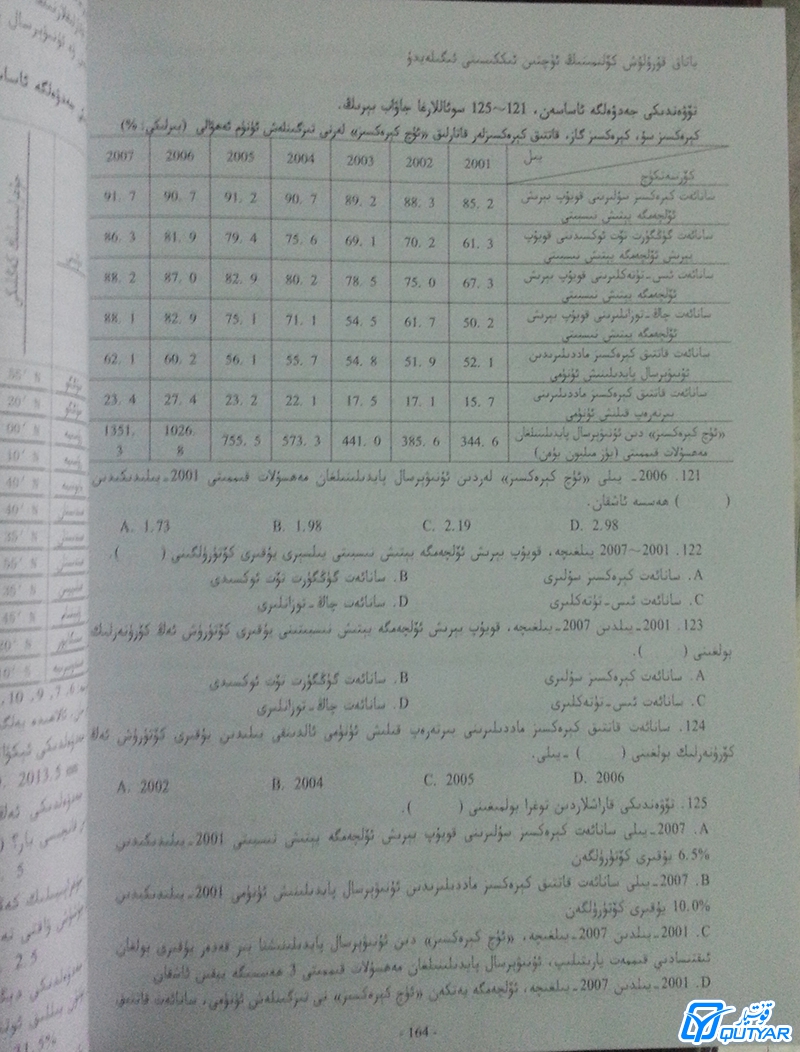 ياتاق قۇرۇلۇش كۆلىمىنىڭ ئۈچتىن ئىككىسىنى ئىگىلەيدۇ
تۆۋەندىكى جەدۋەلگە ئاساسەن، 121~125 سوئاللارغا جاۋاب بېرىڭ.
كېرەكسىز سۇ، كېرەكسىز گاز، قاتتىق كېرەكسىزلەر قاتارلىق «ئۈچ كېرەكسىز» لەرنى تىزگىنلەش ئۈنۈم ئەھۋالى (بىرلىكى: %)
يىل 2001 2002 2003 2004 2005 2006 2007
كۆرسەتكۈچ
سانائەت كېرەكسىز سۇلىرىنى قويۇپ بېرىش ئۆلچەمگە يېتىش نىسبىتى 85.2 88.3 89.2 90.7 91.2 90.7 91.7
سانائەت گۈڭگۈرت تۆت ئوكسىدىنى قويۇپ بېرىش ئۆلچەمگە يېتىش نىسبىتى 61.3 70.2 69.1 75.6 79.4 81.9 86.3
سانائەت ئىس-تۈتەكلىرىنى قويۇپ بېرىش ئۆلچەمگە يېتىش نىسبىتى 67.3 75.0 78.5 80.2 82.9 87.0 88.2
سانائەت چاڭ-توزانلىرىنى قويۇپ بېرىش ئۆلچەمگە يېتىش نىسبىتى 50.2 61.7 54.5 71.1 75.1 82.9 88.1
سانائەت قاتتىق كېرەكسىز ماددىلىرىدىن ئۇنىۋېرسال پايدىلىنىش ئۈنۈمى 52.1 51.9 54.8 55.7 56.1 60.2 62.1
سانائەت قاتتىق كېرەكسىز ماددىلىرىنى بىرتەرەپ قىلىش ئۈنۈمى 15.7 17.1 17.5 22.1 23.2 27.4 23.4
«ئۈچ كېرەكسىز» دىن ئۇنىۋېرسال پايدىلىنىلغان مەھسۇلات قىممىتى (يۈز مىليون يۈەن) 344.6 385.6 441.0 573.3 755.5 1026.8 1351.3
121. 2006-يىلى «ئۈچ كېرەكسىز» لەردىن ئۇنىۋېرسال پايدىلىنىلغان مەھسۇلات قىممىتى 2001-يىلىدىكىدىن
( ) ھەسسە ئاشقان.
A. 1.73 B. 1.98 C. 2.19 D. 2.98
122. 2001~2007 يىلغىچە، قويۇپ بېرىش ئۆلچەمگە يېتىش نىسبىتى يىلسېرى يۇقىرى كۆتۈرۈلگىنى ( ).
A. سانائەت كېرەكسىز سۇلىرى B. سانائەت گۈڭگۈرت تۆت ئوكسىدى
C. سانائەت ئىس-تۈتەكلىرى D. سانائەت چاڭ-توزانلىرى
123. 2001-يىلدىن 2007-يىلغىچە، قويۇپ بېرىش ئۆلچەمگە يېتىش نىسبىتىنى يۇقىرى كۆتۈرۈش ئەڭ كۆرۈنەرلىك
بولغىنى ( ).
A. سانائەت كېرەكسىز سۇلىرى B. سانائەت گۈڭگۈرت تۆت ئوكسىدى
C. سانائەت ئىس-تۈتەكلىرى D. سانائەت چاڭ-توزانلىرى
124. سانائەت قاتتىق كېرەكسىز ماددىلىرىنى بىرتەرەپ قىلىش ئۈنۈمى ئالدىنقى يىلىدىن يۇقىرى كۆتۈرۈش ئەڭ
كۆرۈنەرلىك بولغىنى ( ) -يىلى.
A. 2002 B. 2004 C. 2005 D. 2006
125. تۆۋەندىكى قاراشلاردىن توغرا بولمىغىنى ( ).
A. 2007-يىلى سانائەت كېرەكسىز سۇلىرىنى قويۇپ بېرىش ئۆلچەمگە يېتىش نىسبىتى 2001-يىلىدىكىدىن
6.5% يۇقىرى كۆتۈرۈلگەن
B. 2007-يىلى سانائەت قاتتىق كېرەكسىز ماددىلىرىدىن ئۇنىۋېرسال پايدىلىنىش ئۈنۈمى 2001-يىلىدىكىدىن
10.0% يۇقىرى كۆتۈرۈلگەن
C. 2001-يىلدىن 2007-يىلغىچە، «ئۈچ كېرەكسىز» دىن ئۇنىۋېرسال پايدىلىنىشتا بىر قەدەر يۇقىرى بولغان
ئىقتىسادىي قىممەت يارىتىلىپ، ئۇنىۋېرسال پايدىلىنىلغان مەھسۇلات قىممىتى 3 ھەسسىگە يېقىن ئاشقان
D. 2001-يىلدىن 2007-يىلغىچە، ئۆلچەمگە يەتكەن «ئۈچ كېرەكسىز» نى تىزگىنلەش ئۈنۈمى، سانائەت قاتتىق
- 164 -
قۇتيار
QUTYAR